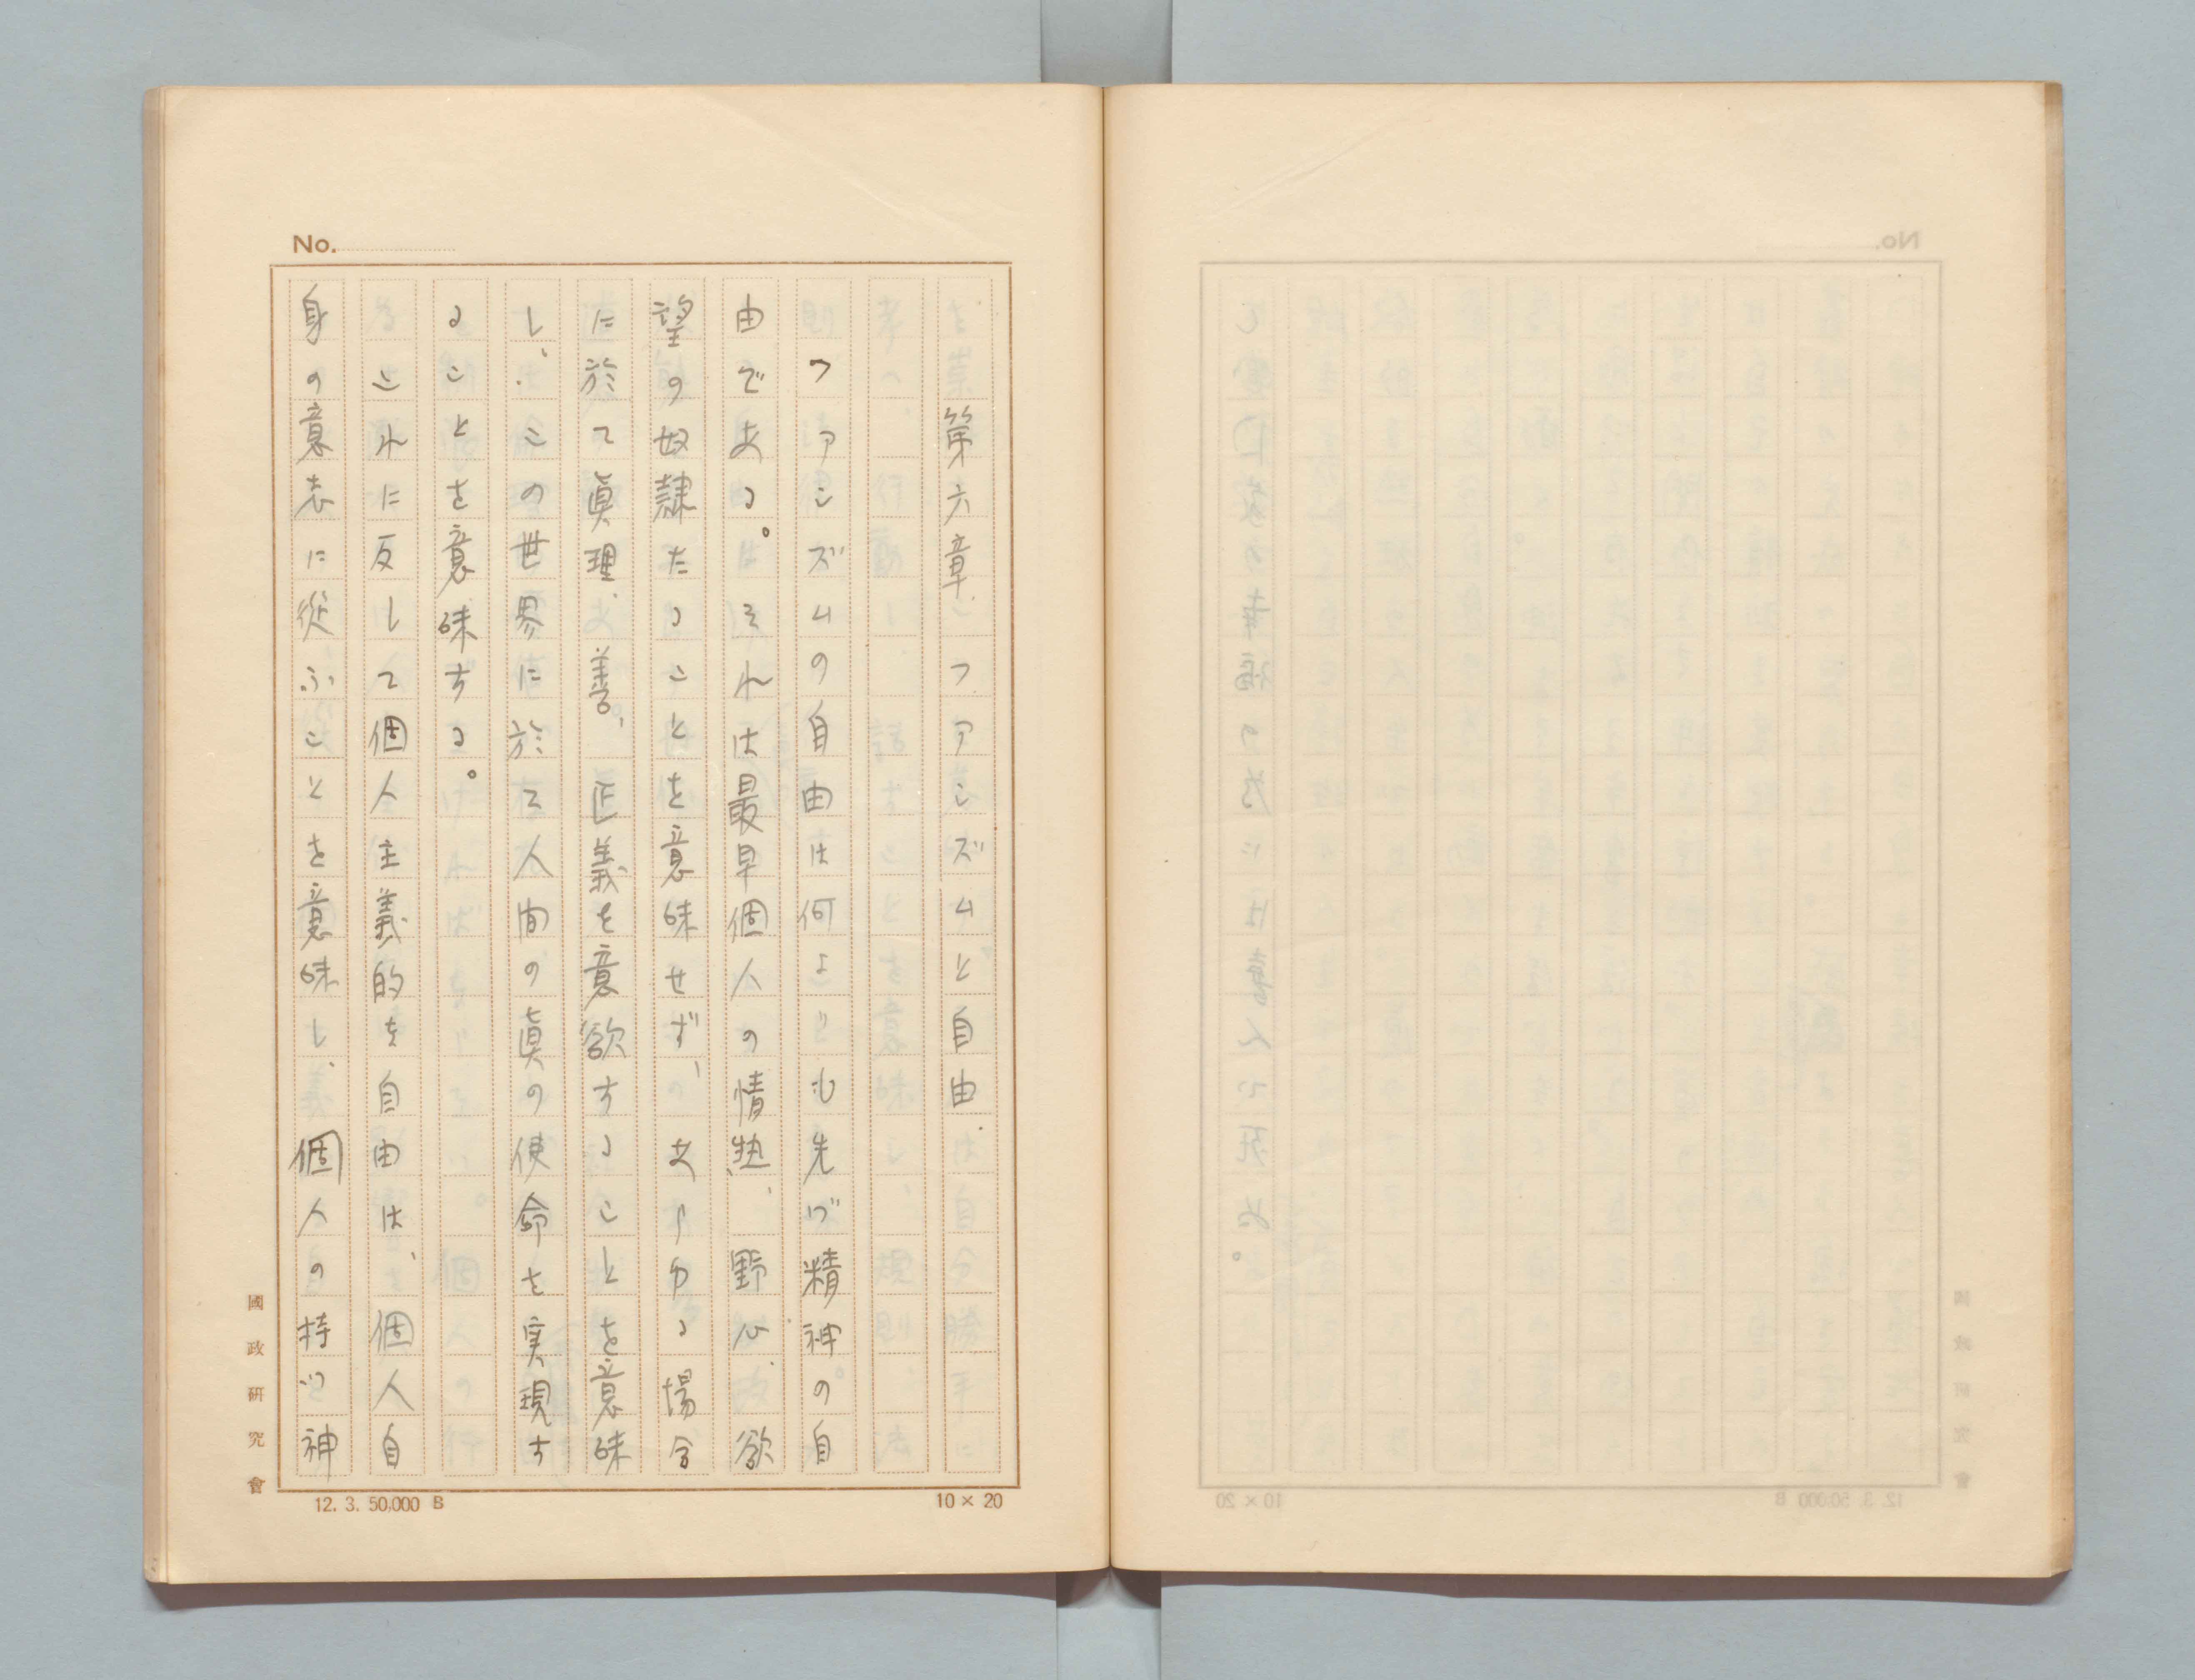 No.
第六章　ファシズムと自由
ファシズムの自由は何よりも先づ精神の自
由である。それは最早個人の情熱、野心、欲
望の奴隷たることを意味せず、あらゆる場合
に於て眞理、善、正義を意欲することを意味
し、この世界に於て人間の眞の使命を実現す
ることを意味する。
これに反して個人主義的な自由は、個人自
身の意志に從ふことを意味し、個人の持つ神
國政研究會
12. 3. 50,000 B
10 × 20